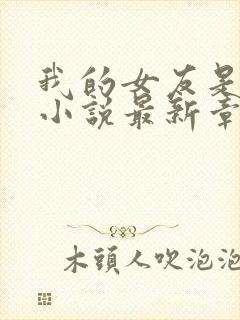 我的女友是
小說最新章
木頭人吹泡泡